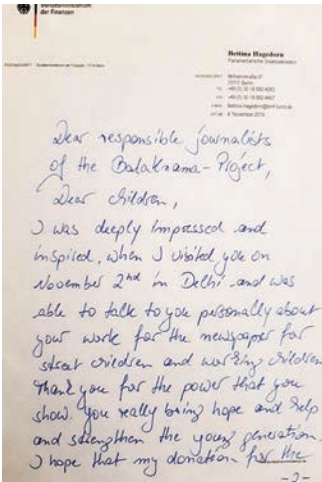 Bundesministerium
der Finanzen
Bettina Hagedorn
Parlamentarische Staatssekretärin
11016 Berlin
Dear responsible journalists
of the Balaknama-Project,
Dear children,
I was deeply impressed and
inspired, when I visited you on
November 2nd in Delhi and was
able to talk to you personally about
your work for the newspaper for
street children and working children
Thank you for the power that you
show. You really bring hope and help
and strengthen the young generation.
I hope that my donation for the
-2-